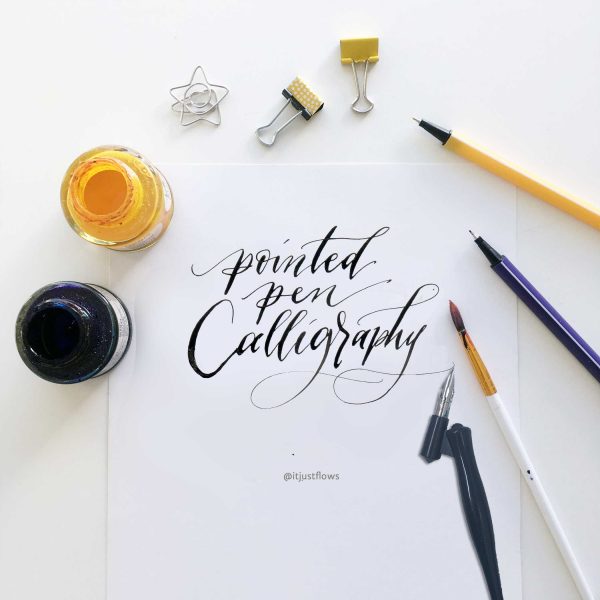 pointed
pen
Calligraphy
@itjustflows